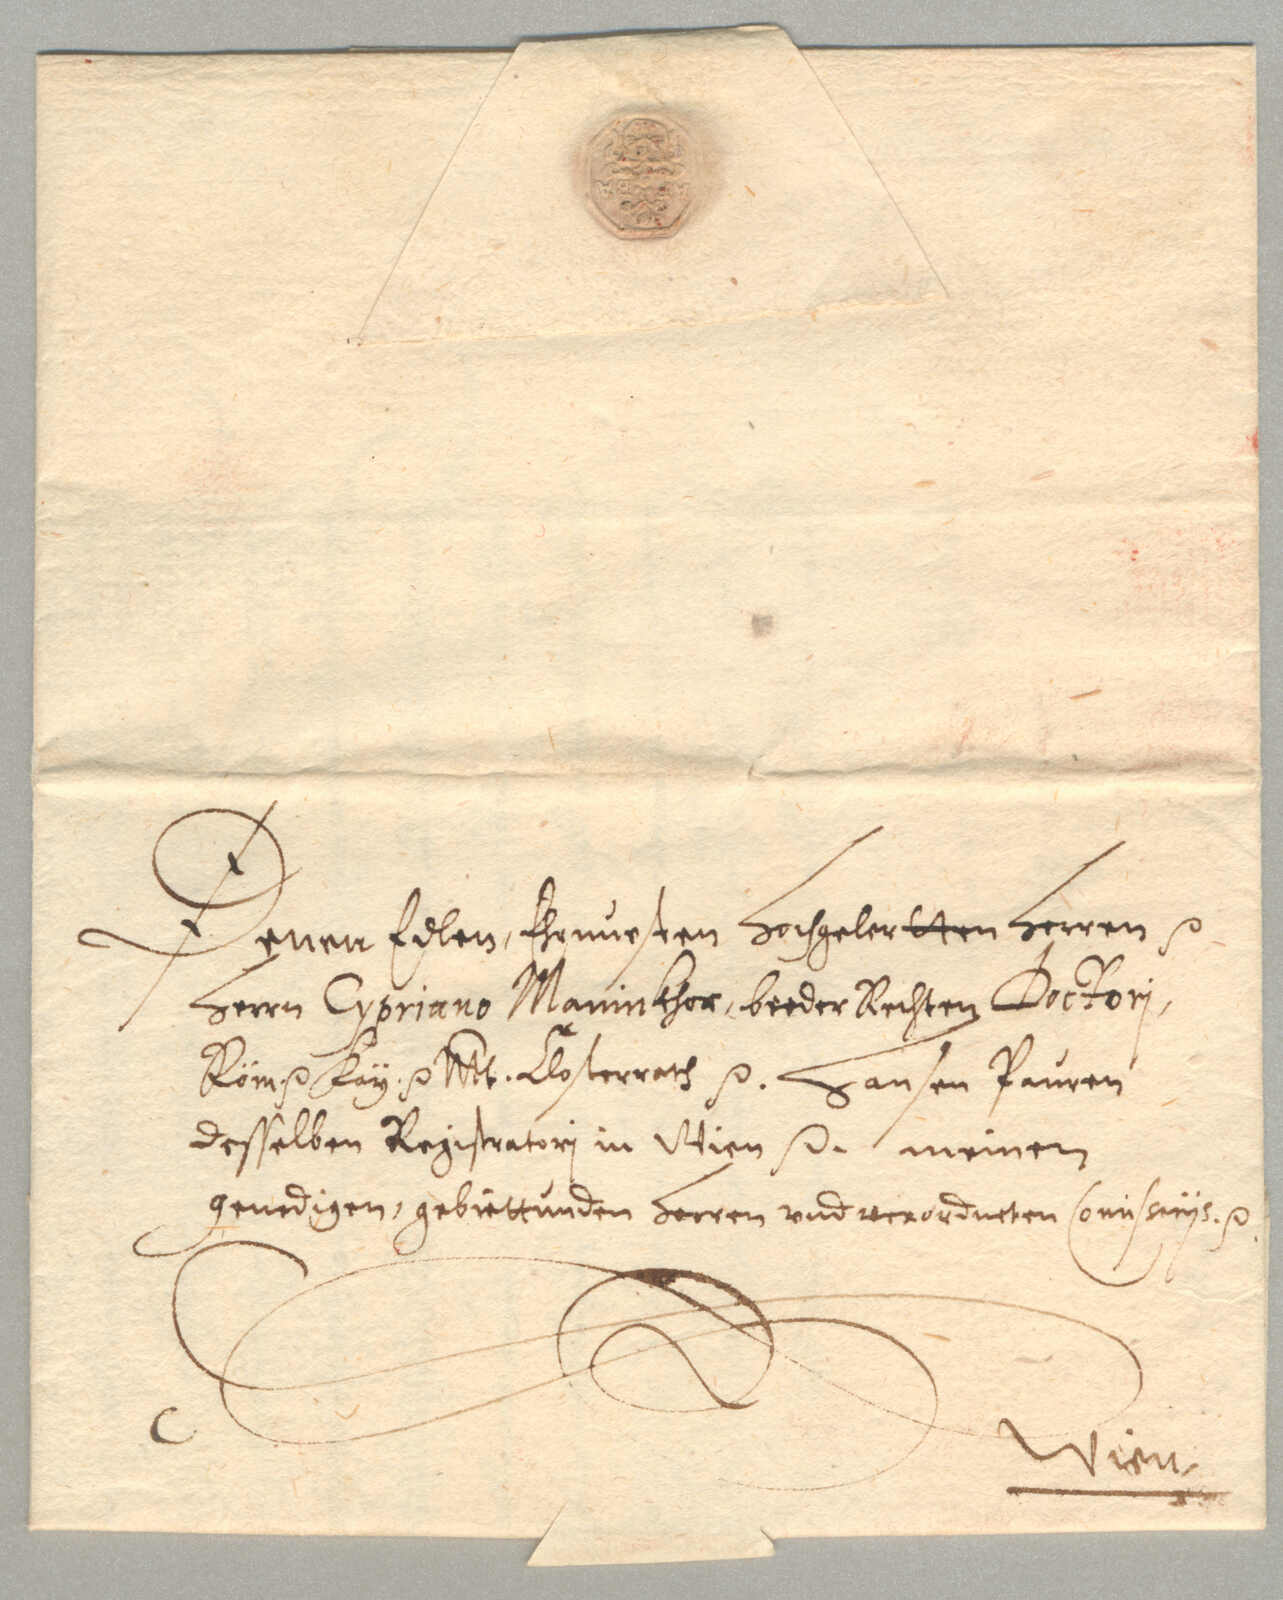 Denen Edlen, Ehrnuesten Hochgelertten Herren &
Herrn Cypriano Maninkhor, beeder Rechten Doctorj,
Röm. & Kay. & Mt. Closterrath &. Hansen Pauren
desselben Registratorj in Wien &. meinen
genedigen, gebiettunden Herren vnd verordneten Comissarijs. &.
C
Wien.